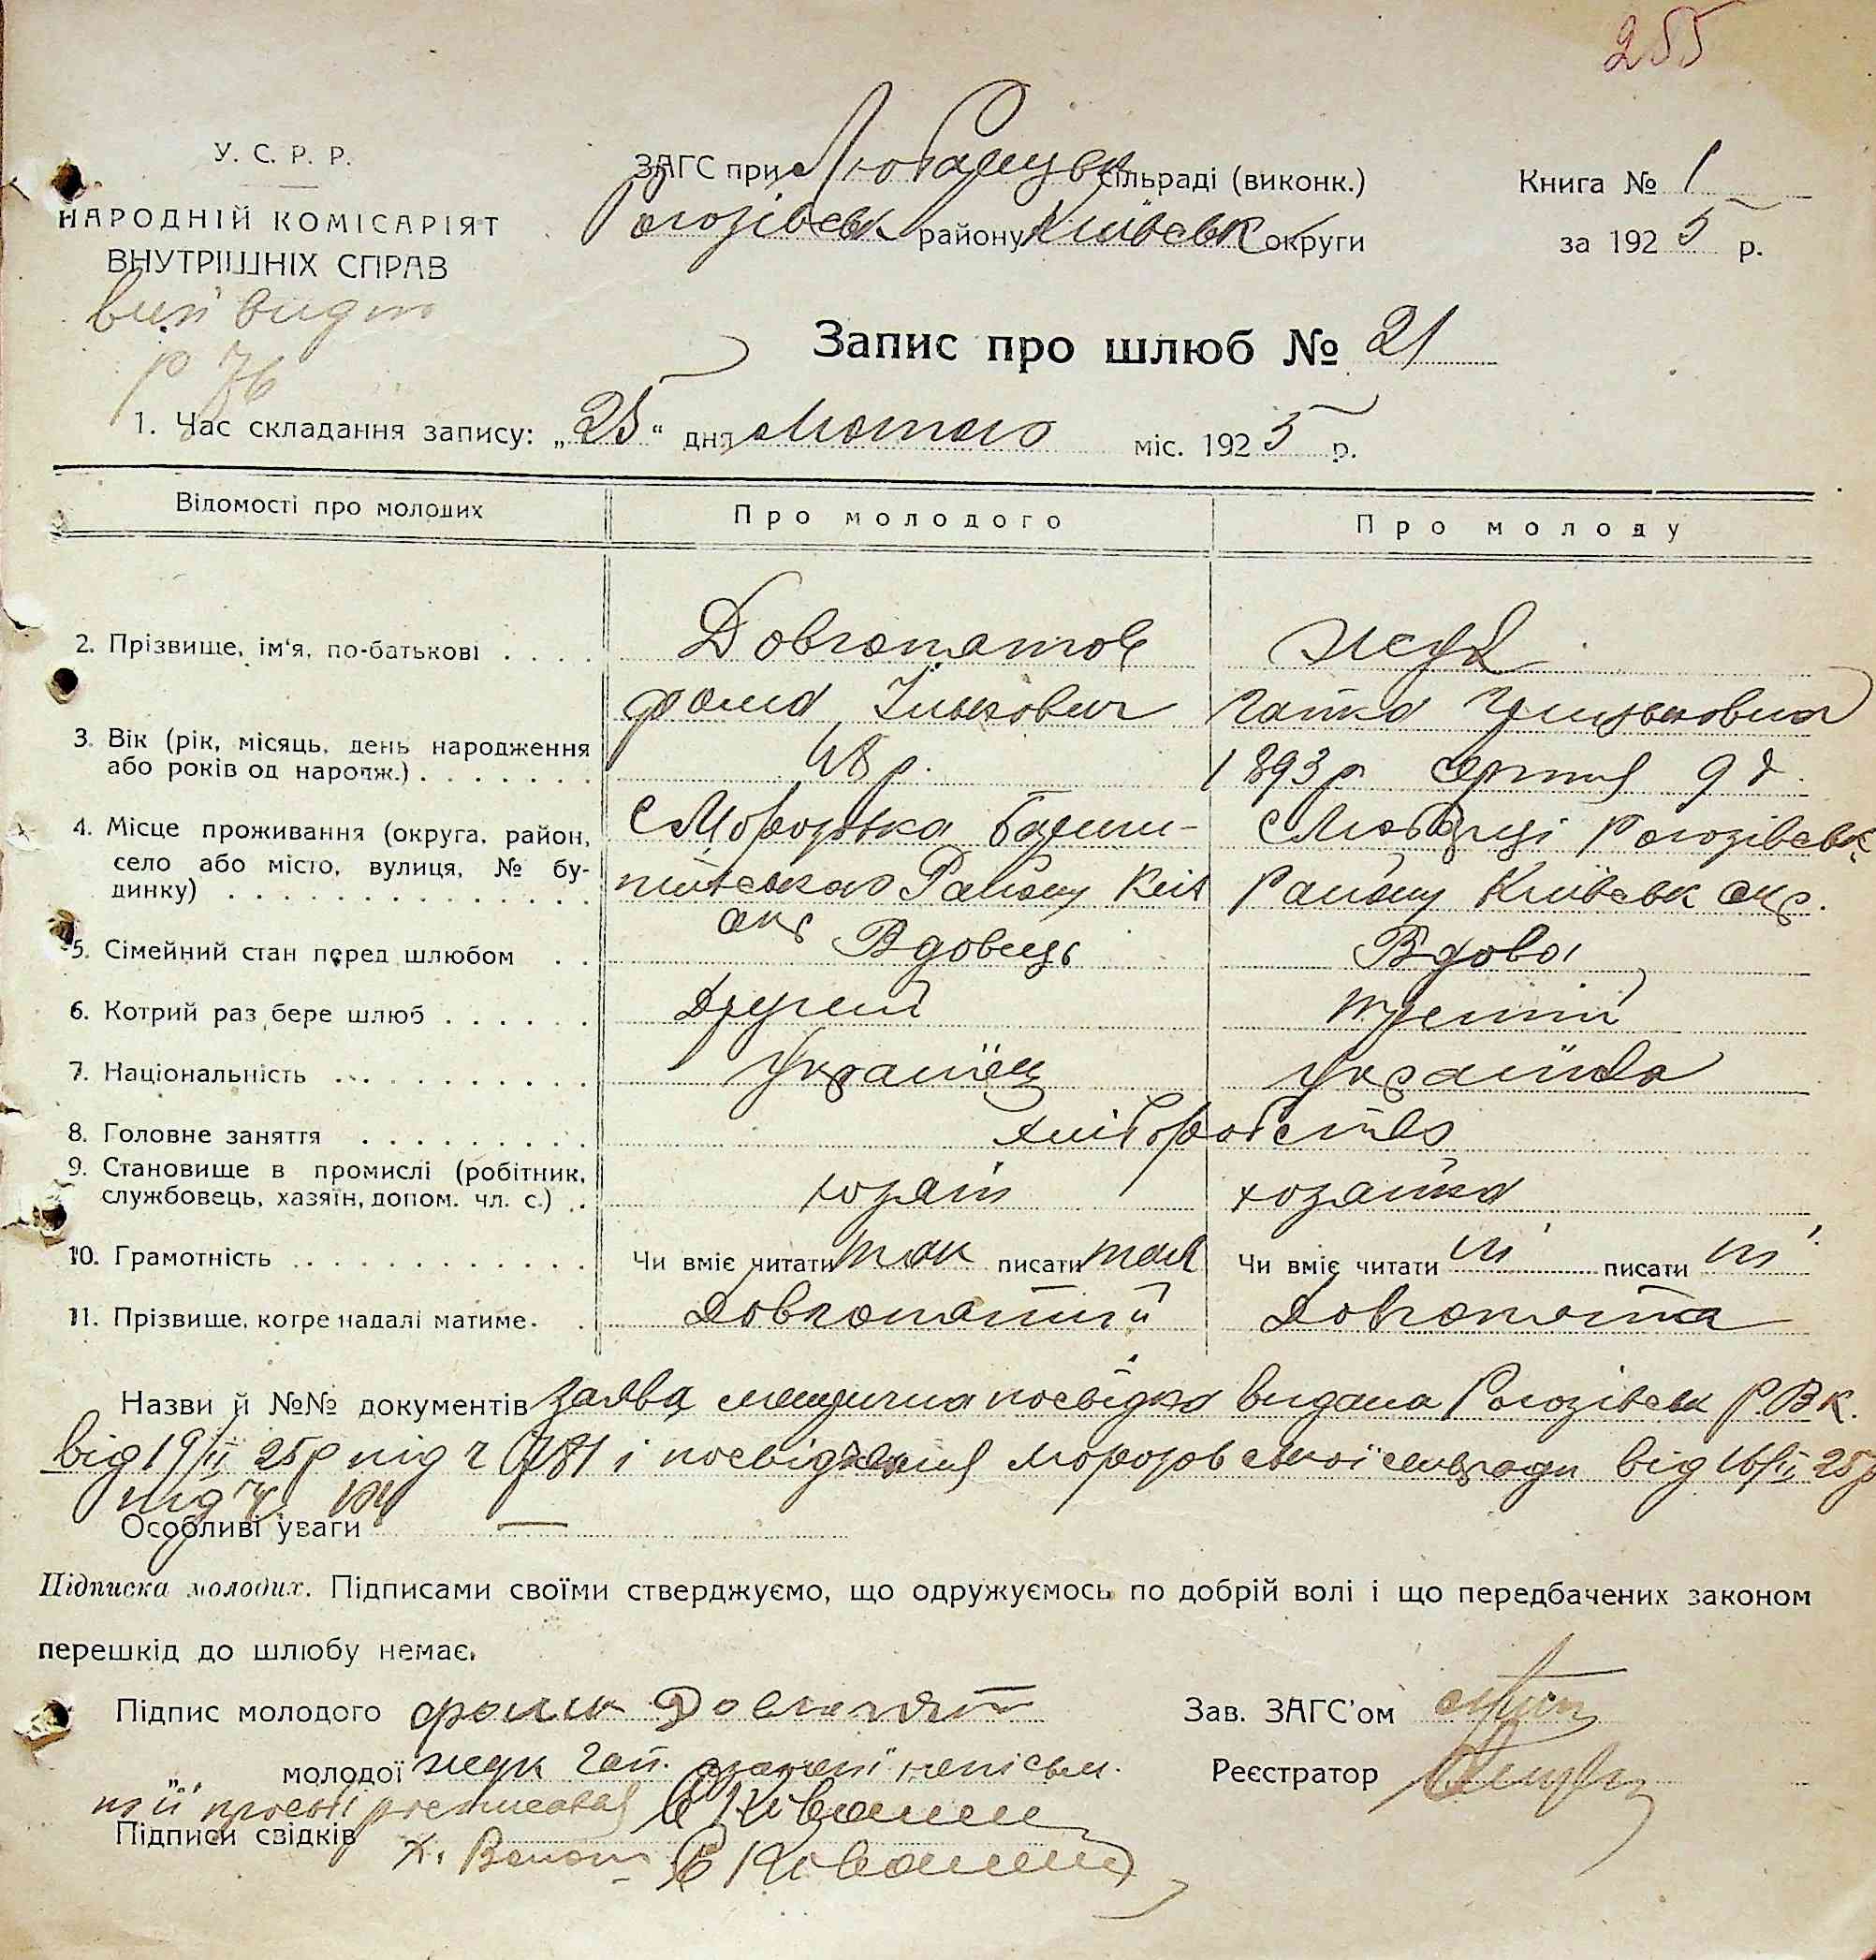 255
У. С. Р. Р.
НАРОДНІЙ КОМІСАРІЯТ
ВНУТРІШНІХ СПРАВ
ЗАГС при Любарецьк сільраді (виконк.)
Рогозівськ району Київськ округи
Книга № 1
за 1925 р.
Запис про шлюб № 21
1. Час складання запису: „25“ дня Лютого міс. 1925 р.
Відомості про молодих
Про молодого
Про молоду
2. Прізвище, ім'я, по-батькові
Довгопятов
Фома Ількович
3. Вік (рік, місяць, день народження
або років од народж.)
48 р.
1893 р серпня 9 д.
4. Місце проживання (округа, район,
село або місто, вулиця, № бу-
динку)
с Морозівка Бариш-
пільського Району Київ
окр
с Любарці Рогозівськ
Району Київськ окр.
5. Сімейний стан перед шлюбом
Вдовець
Вдова
6. Котрий раз бере шлюб
Другий
третій
7. Національність
Українец
Українка
8. Головне заняття
хліборобство
9. Становище в промислі (робітник,
службовець, хазяїн, допом. чл. с.)
хозяїн
хозяйка
10. Грамотність
Чи вміє читати так писати так
Чи вміє читати ні писати ні
11. Прізвище, котре надалі матиме.
Довгопятий
Довгопята
Назви й №№ документів Заява метрична посвідка видана Рогозівськ Р.В.К.
від 19/II 25р під ч 781 і посвідчення Морозовської сільради від 16/II 25р
під ч.
Особливі уваги —
Підписка молодих. Підписами своїми стверджуємо, що одружуємось по добрій волі і що передбачених законом
перешкід до шлюбу немає.
Підпис молодого фома Довгопят
Зав. ЗАГС'ом
„ молодої
Реєстратор
її просьбі росписався
Підписи свідків